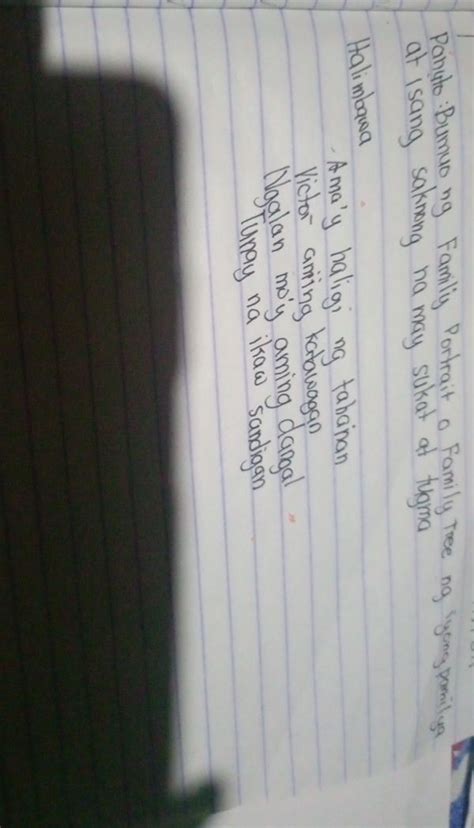 Panuto: Bumuo ng Family Portrait o Family Tree ng iyong pamilya
at isang saknong na may sukat at tugma
Halimbawa
Ama'y haligi ng tahanan
Victor aming katawagan
Ngalan mo'y aming dangal
Tunay na ikaw sandigan